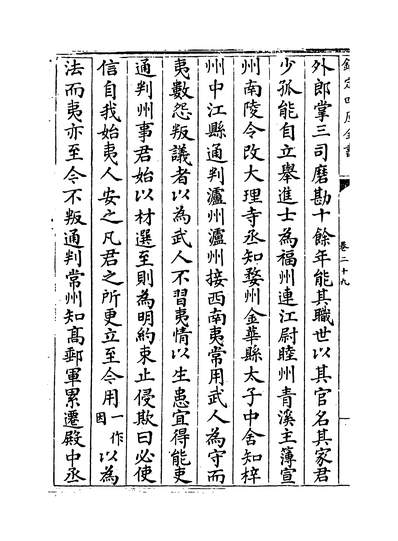 欽定四庫全書
卷二十九
一
外郎掌三司磨勘十餘年能其職世以其官名其家君
少孤能自立舉進士為福州連江尉睦州青溪主薄宣
州南陵令改大理寺丞知婺州金華縣太子中舍知梓
州中江縣通判瀘州瀘州接西南夷常用武人為守而
夷數怨叛議者以為武人不習夷情以生患宜得能吏
通判州事君始以材選至則為明約束止侵欺曰必使
信自我始夷人安之凡君之所更立至今用一作因以為
法而夷亦至今不叛通判常州知高郵軍累遷殿中丞